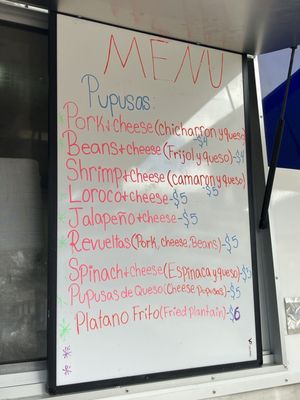 MENU
Pupusas:
Pork+cheese(chicharron y queso)
-$4
Beans+cheese(Frijol y queso)-$4
Shrimp+cheese(camaron y queso)
-$5
Loroco+cheese-$5
Jalapeño+cheese-$5
Revueltas(Pork, cheese, Beans)-$5
Spinach+cheese(Espinaca y queso)-$5
Pupusas de Queso(Cheese pupusas)-$5
Platano Frito(Fried plantain)-$6